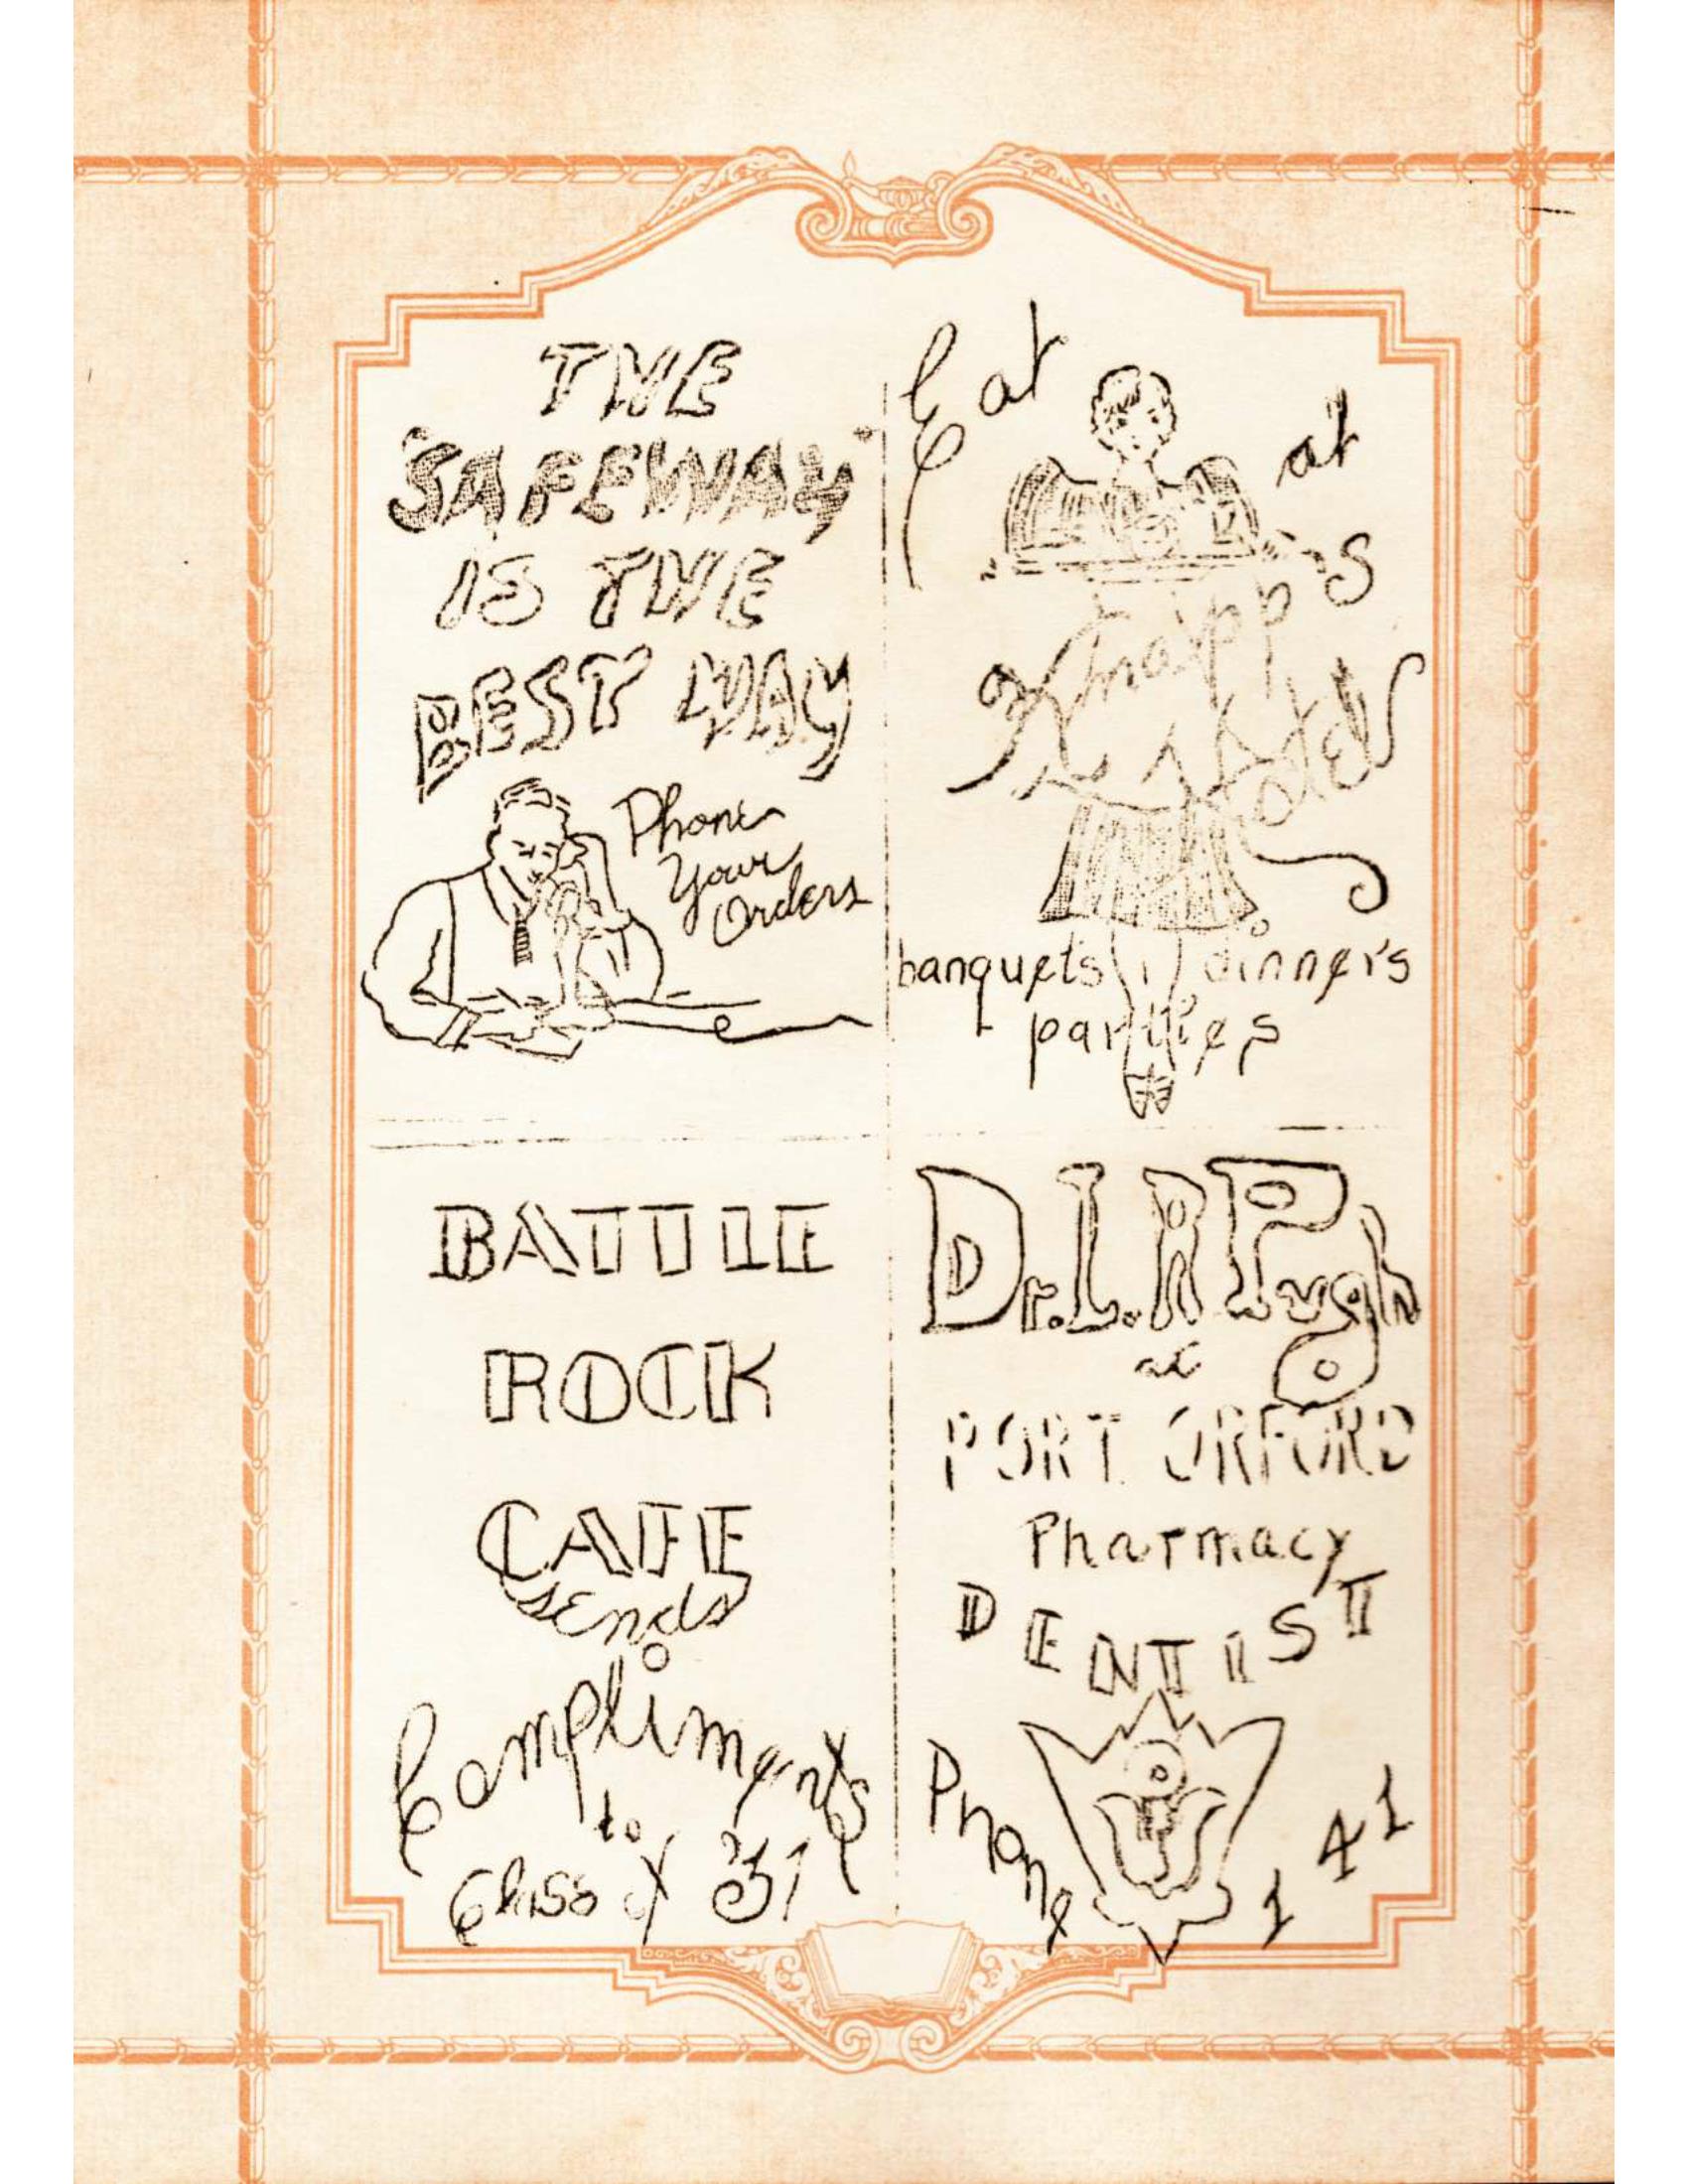 THE
"SAFEWAY"
IS THE
BEST WAY
Phone
Your
Orders
Eat
at
Knapp's
Hotel
banquets dinners
parties
BATTLE
ROCK
CAFE
sends
Compliments
to
Class of '37
Dr. L. R Pugh
at
PORT ORFORD
Pharmacy
DENTIST
Phone 141